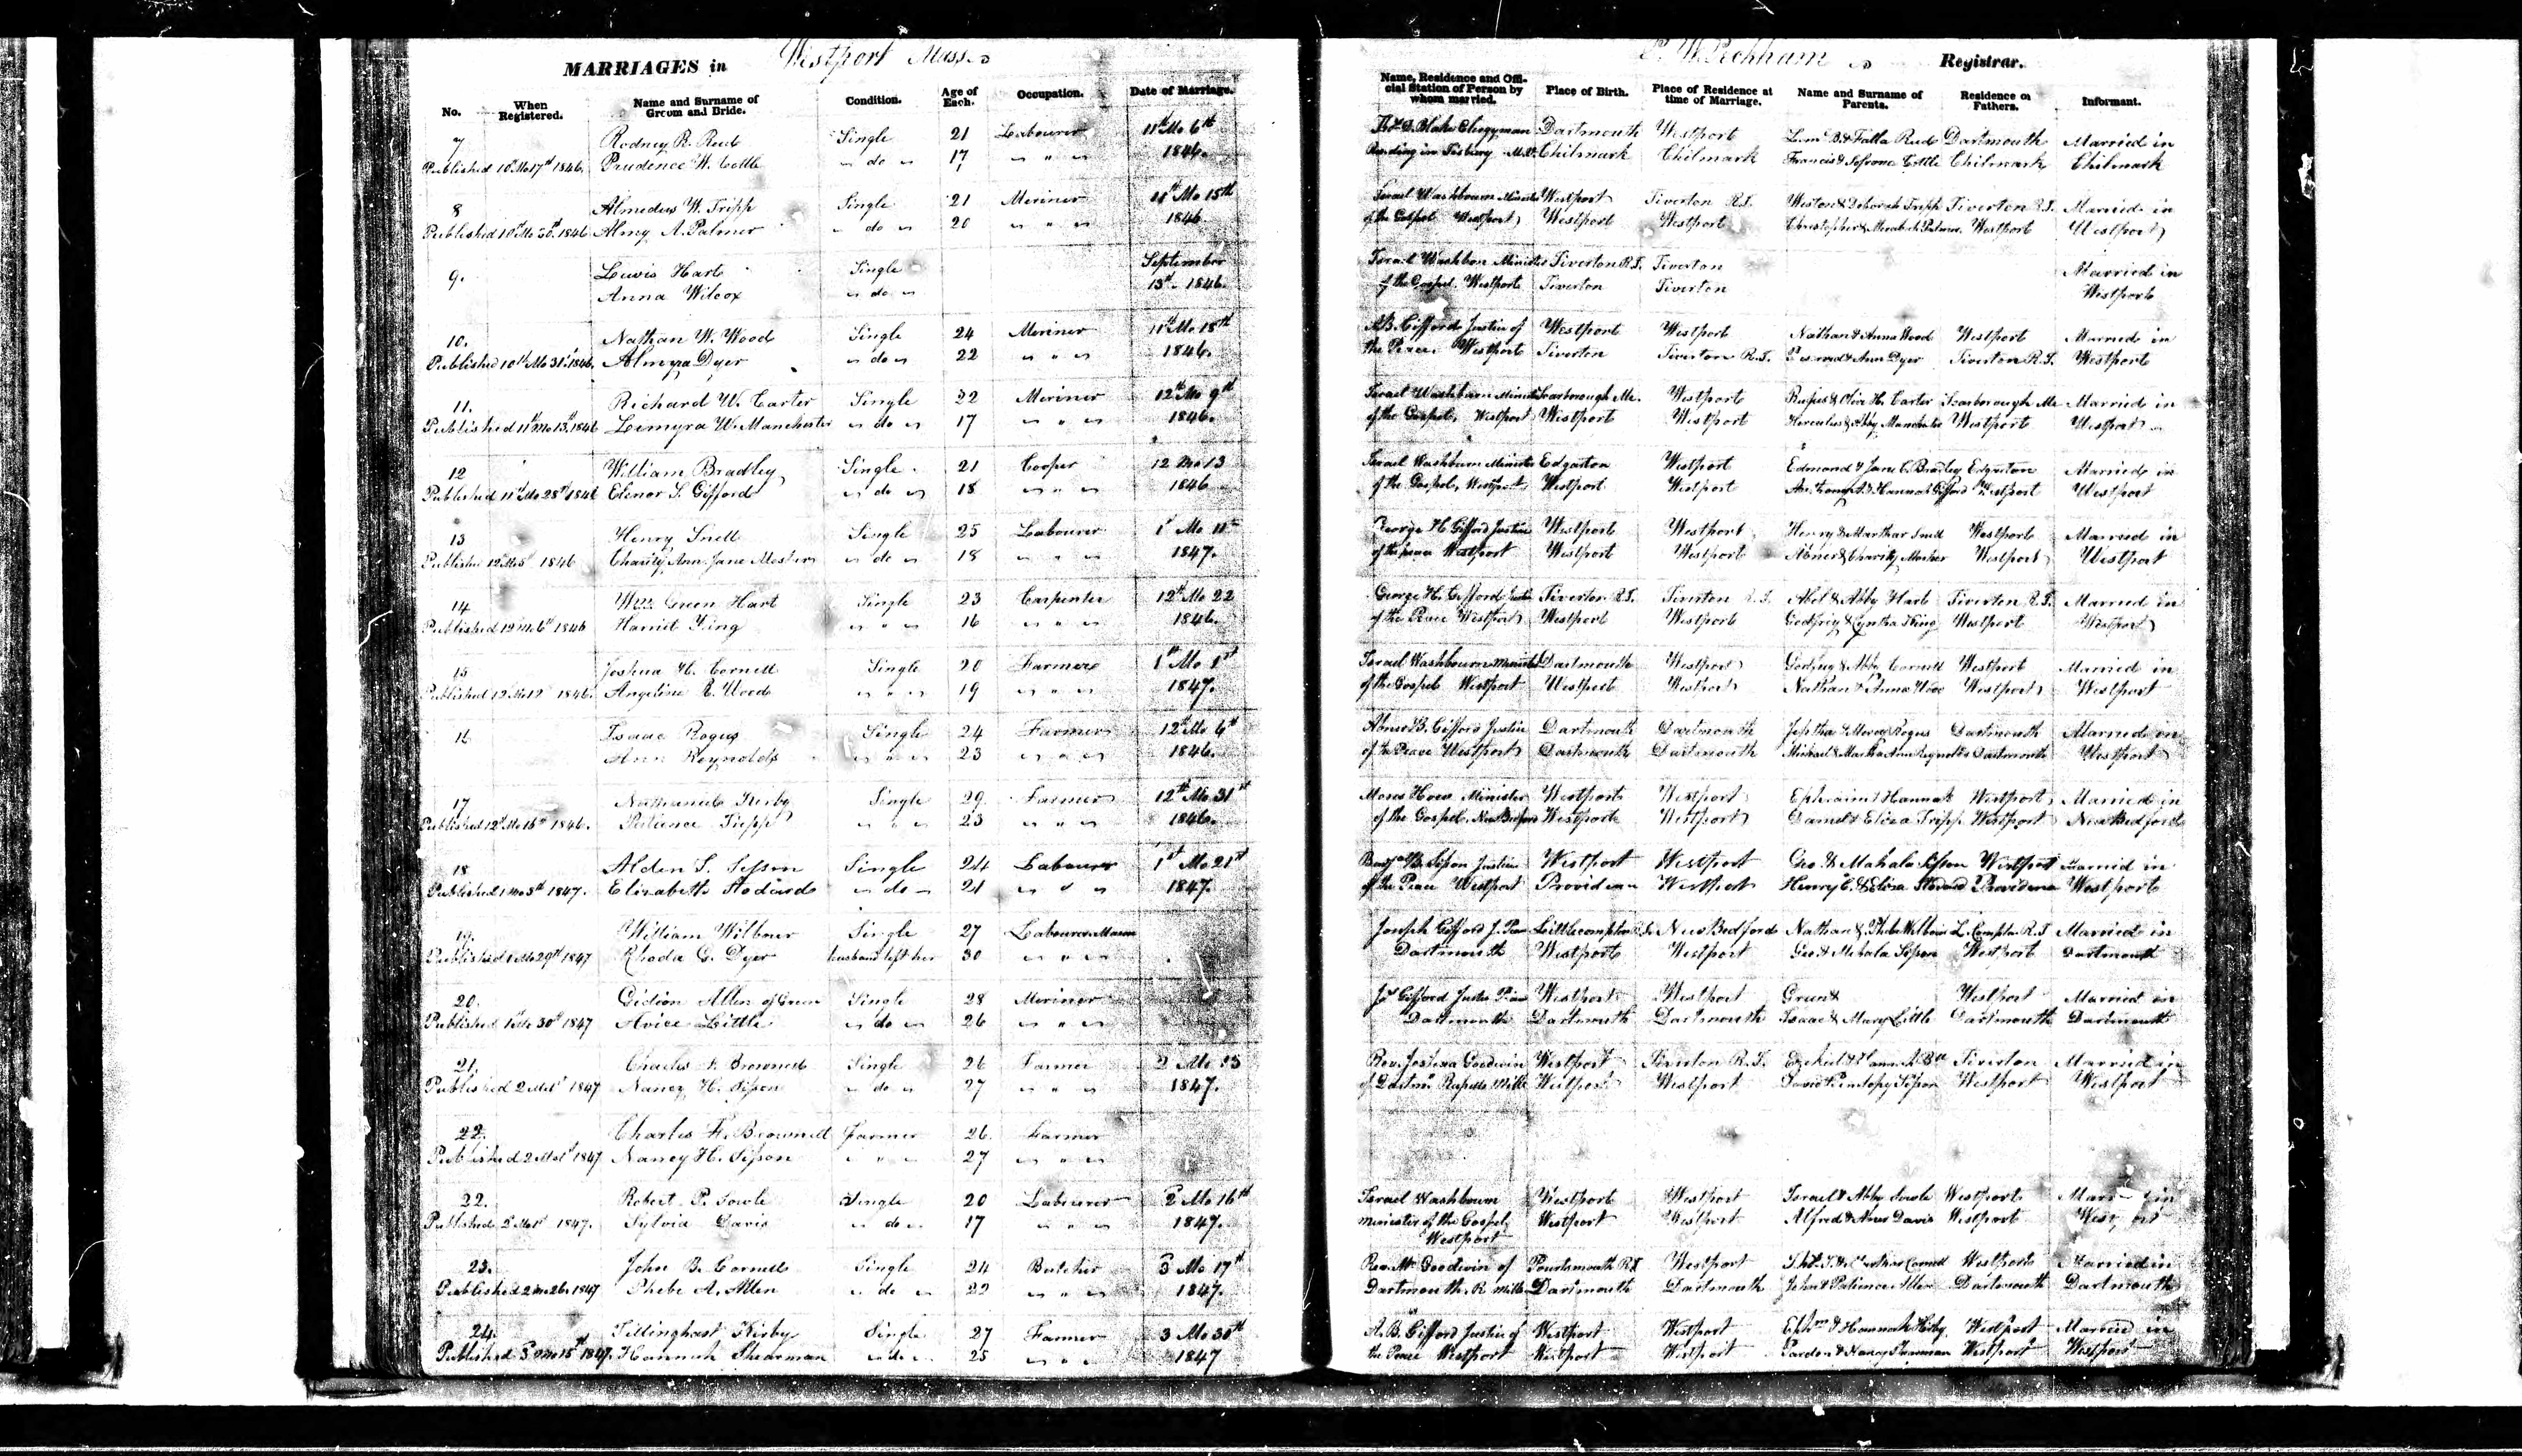 MARRIAGES in Westport Mass.
No. When Registered. Name and Surname of Groom and Bride. Condition. Age of Each. Occupation. Date of Marriage.
7 Rodney R. Reed Single 21 Labourer 11th Mo 6th
Published 10th Mo 17th 1846. Prudence W. Cottle " do " 17 " " " 1846.
8 Almedus W. Tripp Single 21 Meriner 11th Mo 15th
Published 10th Mo 30th 1846 Almy A. Palmer " do " 20 " " " 1846.
9. Lewis Hart Single September
Anna Wilcox " do " 13th 1846.
10. Nathan W. Wood Single 24 Meriner 11th Mo 18th
Published 10th Mo 31st 1846. Almyra Dyer " do " 22 " " " 1846.
11. Richard W. Carter Single 22 Meriner 12th Mo 9th
Published 11th Mo 13th 1846 Lemyra W. Manchester " do " 17 " " " 1846.
12 William Bradley Single 21 Cooper 12 Mo 13
Published 11th Mo 28th 1846 Elenor S. Gifford " do " 18 " " " 1846
13 Henry Snell Single 25 Labourer 1st Mo 11th
Published 12th Mo 5th 1846 Charity Ann Jane Mosher " do " 18 " " " 1847.
14 Wm Green Hart Single 23 Carpenter 12th Mo 22
Published 12th Mo 6th 1846 Harriet King " " " 16 " " " 1846.
15 Joshua H. Cornell Single 20 Farmer 1st Mo 1st
Published 12th Mo 12th 1846. Angeline E. Wood " " " 19 " " " 1847.
16 Isaac Rogus Single 24 Farmer 12th Mo 6th
Ann Reynolds " " " 23 " " " 1846.
17 Nathaniel Kirby Single 29 Farmer 12th Mo 31st
Published 12th Mo 16th 1846. Patience Tripp " " " 23 " " " 1846.
18 Alden S. Sisson Single 24 Labourer 1st Mo 21st
Published 1 Mo 3d 1847. Elizabeth Stodard " do " 21 " " " 1847.
19. William Wilbour Single 27 Labourer Mason
Published 1 Mo 29th 1847 Rhoda G. Dyer husband left her 30 " " "
20. Gidion Allen of Green Single 28 Meriner
Published 1 Mo 30th 1847 Avice Little " do " 26 " " "
21. Charles F. Brownell Single 26 Farmer 2 Mo 23
Published 2 Mo 1st 1847 Nancy H. Sisson " do " 27 " " " 1847.
22. Charles F. Brownell Farmer 26 Farmer
Published 2 Mo 1st 1847 Nancy H. Sisson " " " 27 " " "
22. Robert P. Sowle Single 20 Labourer 2 Mo 16th
Published 2 Mo 1st 1847. Sylvia Davis " do " 17 " " " 1847.
23. John B. Cornell Single 24 Butcher 3 Mo 17th
Published 2 Mo 26. 1847 Phebe A. Allen " do " 22 " " " 1847.
24. Tillinghast Kirby Single 27 Farmer 3 Mo 30th
Published 3 Mo 15th 1847. Hannah Shearman " do " 25 " " " 1847
P. W. Peckham Registrar.
Name, Residence and Official Station of Person by whom married. Place of Birth. Place of Residence at time of Marriage. Name and Surname of Parents. Residence of Fathers. Informant.
Blake Clergyman Dartmouth Westport Reed Dartmouth Married in
Residing in Tisbury M.V. Chilmark Chilmark Francis & Cottle Chilmark Chilmark
Israel Washbourn Minister Westport Tiverton R.I. Weston & Deborah Tripp Tiverton R.I. Married in
of the Gospel Westport Westport Westport Christopher & Palmer Westport Westport
Israel Washbon Minister Tiverton R.I. Tiverton Married in
of the Gospel. Westport Tiverton Tiverton Westport
A.B. Gifford Justice of Westport Westport Nathan & Anna Wood Westport Married in
the Peace. Westport Tiverton Tiverton R.I. & Ann Dyer Tiverton R.I. Westport
Israel Washburn Minister Scarborough Me. Westport Rufus & Olive H. Carter Scarborough Me Married in
of the Gospel, Westport Westport Westport Hercules & Abby Manchester Westport Westport
Israel Washburn Minister Edgarton Westport Edmond & Jane C. Bradley Edgarton Married in
of the Gospel, Westport Westport Westport & Hannah Gifford Westport Westport
George H. Gifford Justice Westport Westport Henry & Marthar Snell Westport Married in
of the peace Westport Westport Westport Abner & Charity Mosher Westport Westport
George H. Gifford Justice Tiverton R.I. Tiverton R.I. Abel & Abby Hart Tiverton R.I. Married in
of the Peace Westport Westport Westport Godfrey & Cyntha King Westport Westport
Israel Washbourn Minister Dartmouth Westport Godfrey & Abby Cornell Westport Married in
of the Gospel Westport Westport Westport Nathan & Anna Wood Westport Westport
Abner B. Gifford Justice Dartmouth Dartmouth Jeptha & Mercy Rogus Dartmouth Married in
of the Peace Westport Dartmouth Dartmouth Michael & Martha Ann Reynolds Dartmouth Westport
Moses How Minister Westport Westport Ephraim & Hannah Westport Married in
of the Gospel, New Bedford Westport Westport Daniel & Eliza Tripp Westport New Bedford
Sisson Justice Westport Westport Geo. & Mahala Sisson Westport Married in
of the Peace Westport Providence Westport Henry C. & Eliza Stodard Providence Westport
Joseph Gifford J. Peace Littlecompton New Bedford Nathan & Phebe Wilbour L. Compton R.I Married in
Dartmouth Westport Westport Geo & Mehala Sisson Westport Dartmouth
Jos Gifford Justice Peace Westport Westport Green & Westport Married in
Dartmouth Dartmouth Dartmouth Isaac & Mary Little Dartmouth Dartmouth
Rev. Joshua Goodwin Westport Tiverton R.I. Ezekiel & Tiverton Married in
of Dartm. Russells Mills Westport Westport David & Penelopy Sisson Westport Westport
Israel Washbourn Westport Westport Israel & Abby Sowle Westport in
Minister of the Gospel, Westport Westport Alfred & Davis Westport Westport
Westport
Rev. Mr Goodwin of Pourtsmouth R.I. Westport Cornell Westport Married in
Dartmouth. R. Mills Dartmouth Dartmouth John & Patience Allen Dartmouth Dartmouth
A. B. Gifford Justice of Westport Westport Ephm & Hannah Kirby Westport Married in
the Peace Westport Westport Westport Pardon & Nancy Shearman Westport Westport